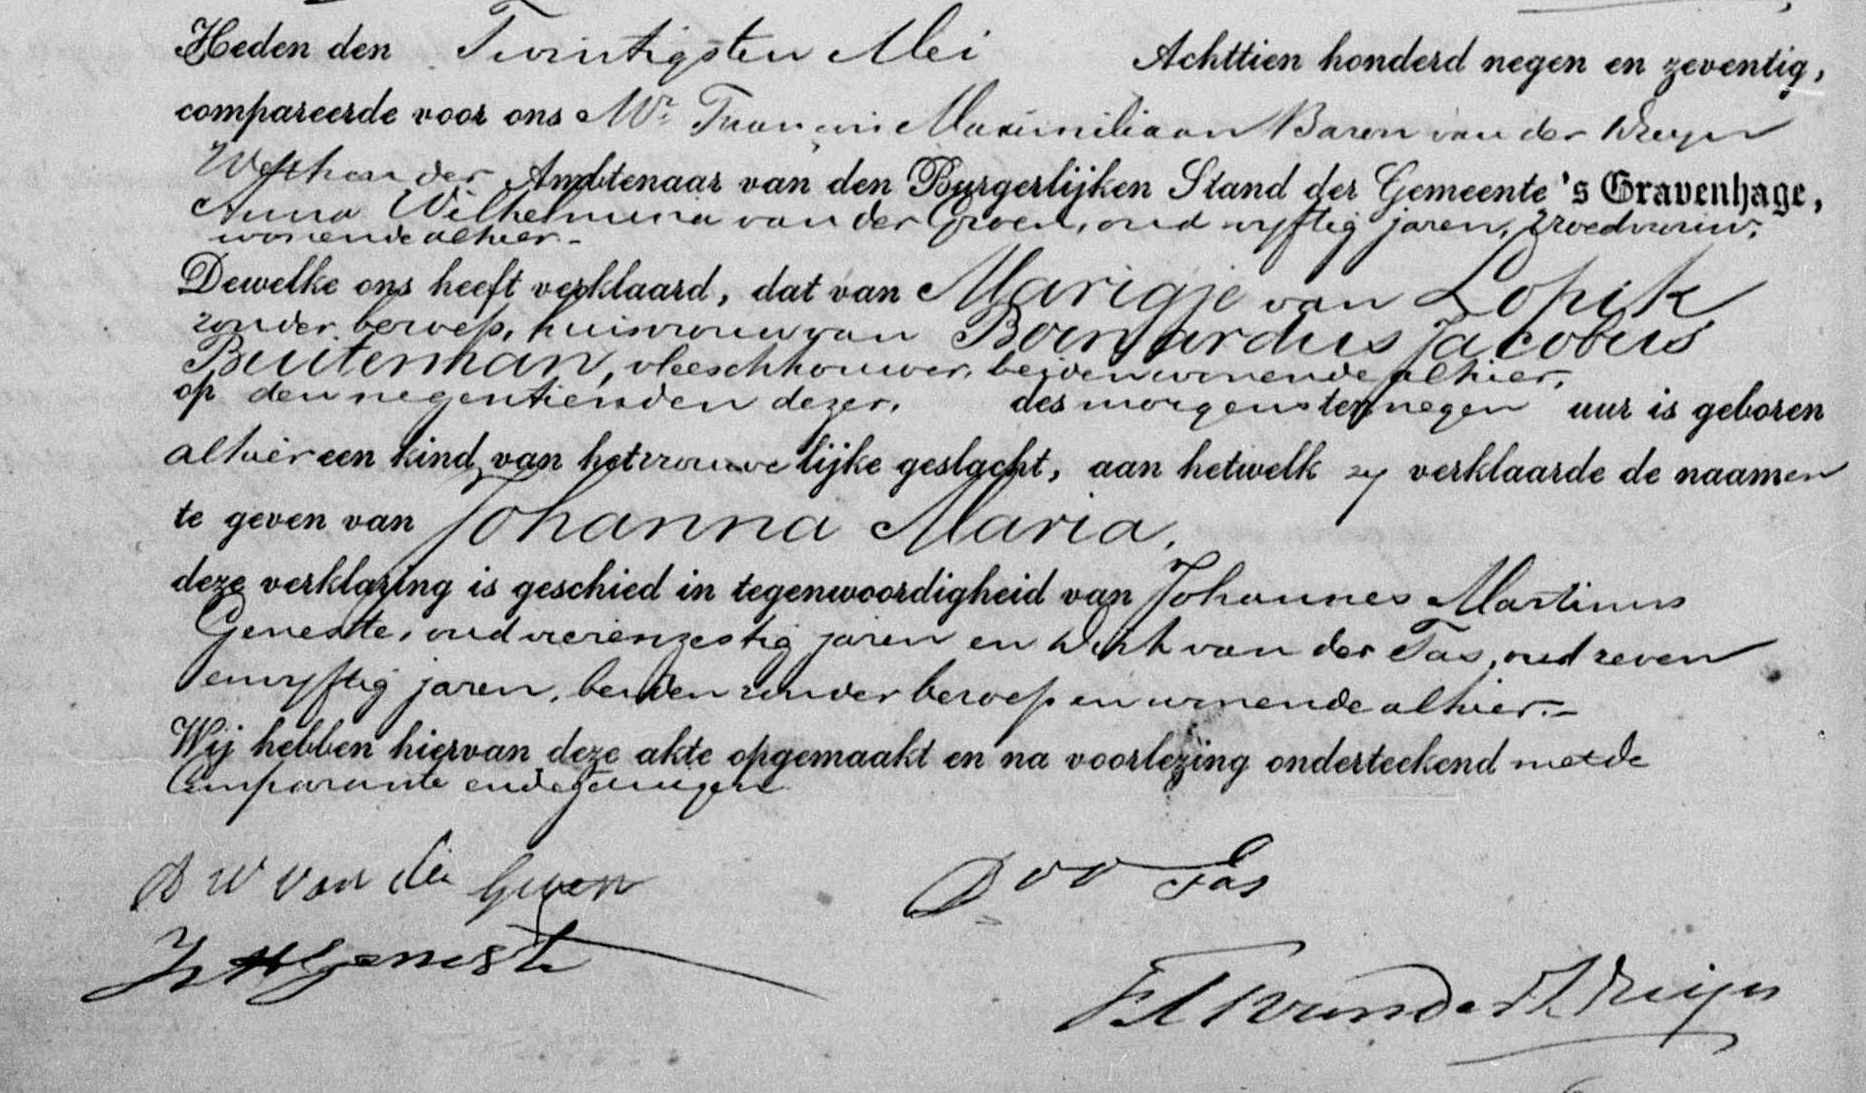 Heden den Twintigsten Mei Achttien honderd negen en zeventig,
compareerde voor ons Mr. François Maximiliaan Baron van der Duyn
Wethouder Ambtenaar van den Burgerlijken Stand der Gemeente 's Gravenhage,
Anna Wilhelmina van der Groen, oud vyftig jaren, Vroedvrouw,
wonende alhier.-
Dewelke ons heeft verklaard, dat van Marigje van Lopik
zonder beroep, huisvrouw van Bernardus Jacobus
Buitenman, vleeschhouwer, beiden wonende alhier,
op den negentienden dezer, des morgens ten negen uur is geboren
alhier een kind van het vrouwelijke geslacht, aan hetwelk zy verklaarde de naamen
te geven van Johanna Maria.
deze verklaring is geschied in tegenwoordigheid van Johannes Martinus
Geneste, oud vierenzestig jaren en Dirk van der Tas, oud zeven
envyftig jaren, beiden zonder beroep en wonende alhier.-
Wij hebben hiervan deze akte opgemaakt en na voorlezing onderteekend met de
Comparante en de getuigen
W van der Groen
D v d Tas
Geneste